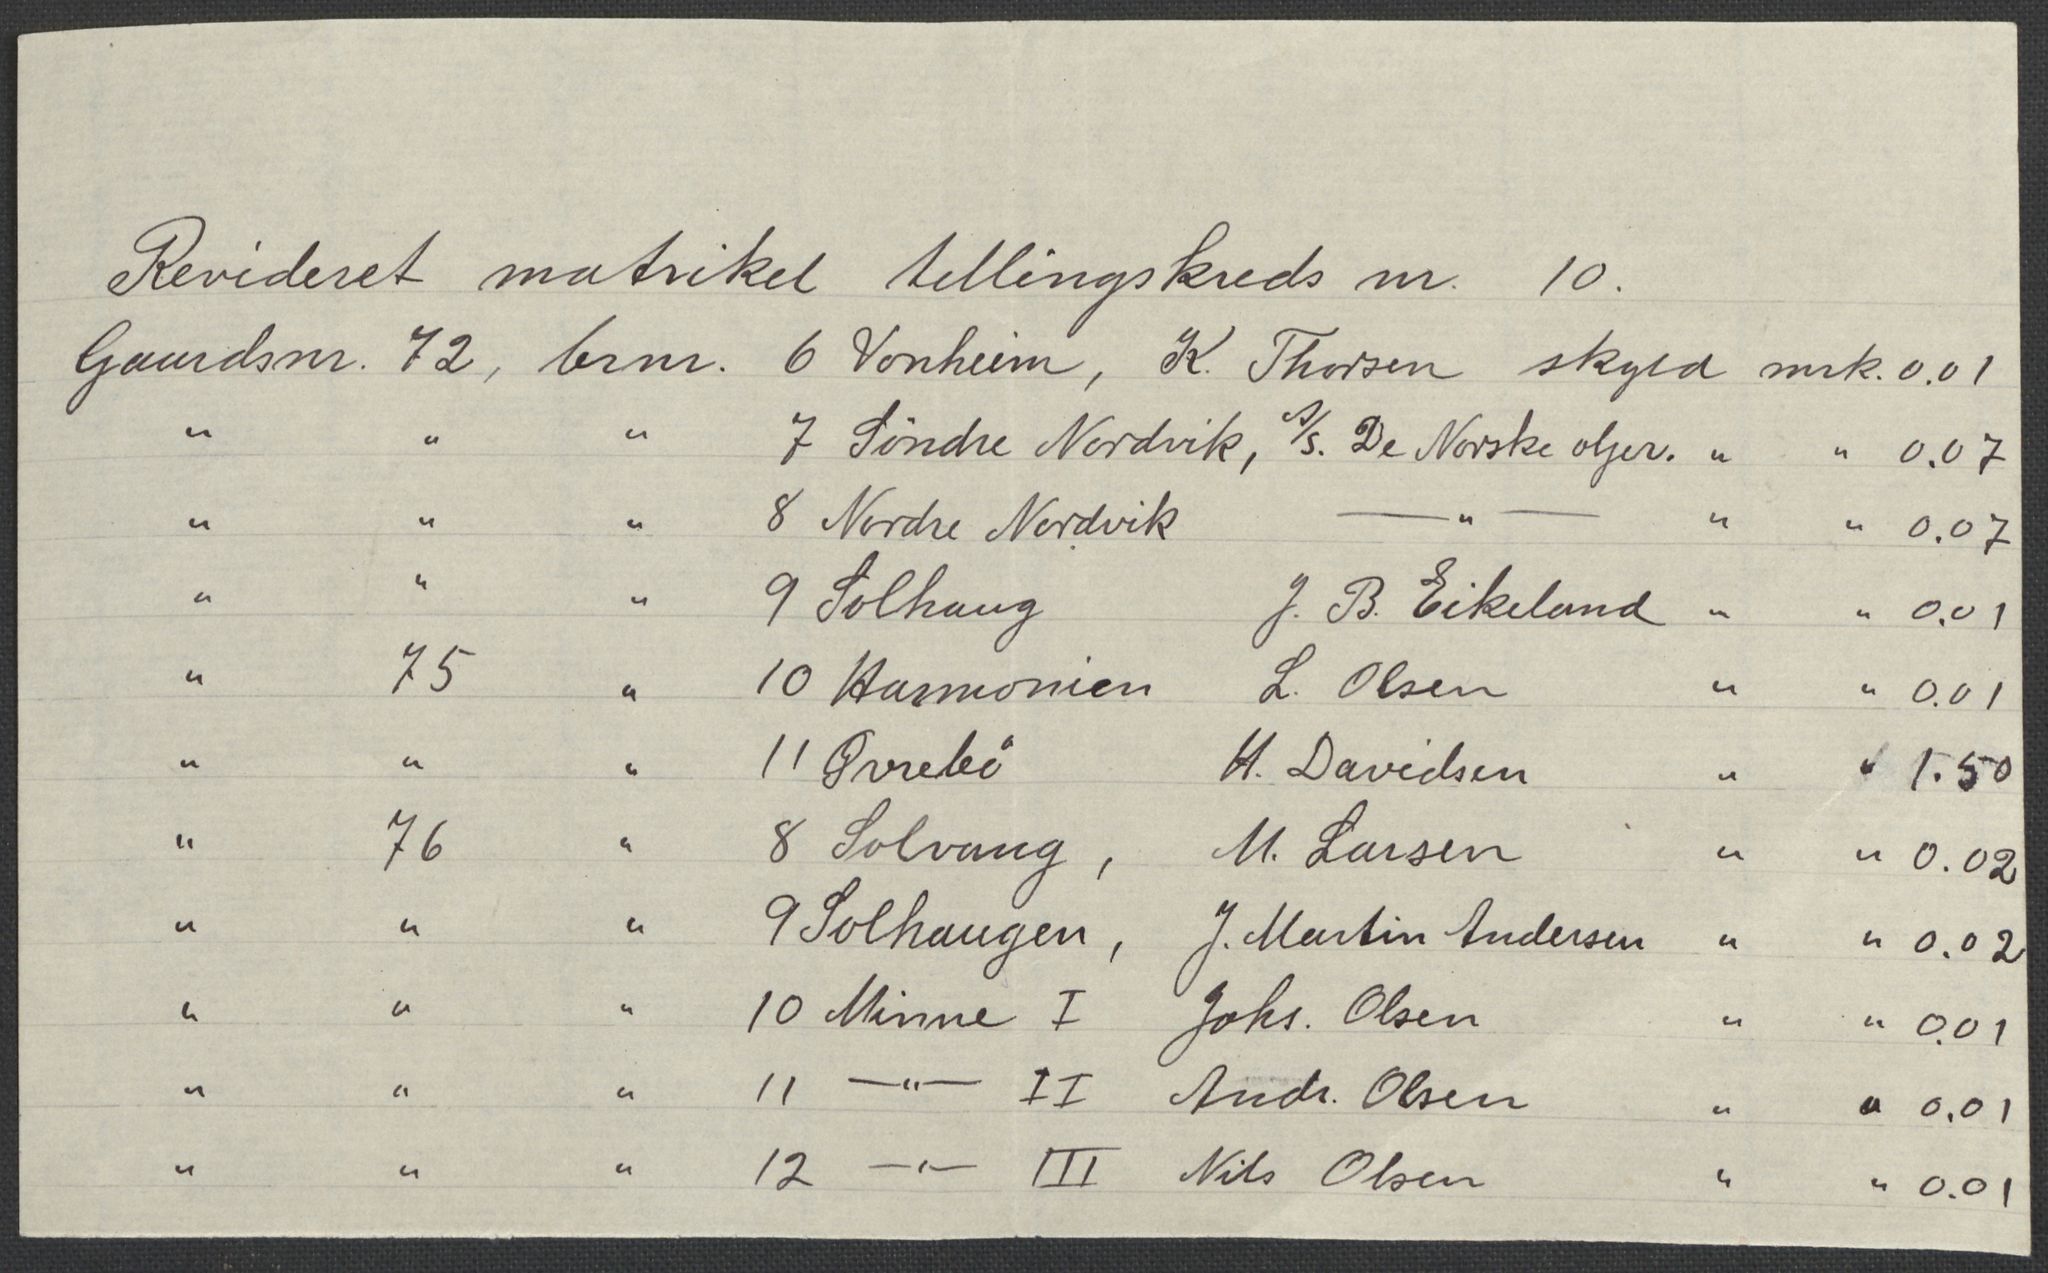 Revideret matrikel tellingskreds nr. 10.
Gaardsnr. 72, brnr. 6 Vonheim, K. Thorsen skyld mrk. 0.01
" " " 7 Söndre Nordvik, A/s. De Norske oljer. " " 0.07
" " " 8 Nordre Nordvik —"— " " 0.07
" " " 9 Solhaug J. B. Eikeland " " 0.01
" 75 " 10 Harmonien L. Olsen " " 0.01
" " " 11 Øvrebö H. Davidsen " " 1.50
" 76 " 8 Solvang, M. Larsen " " 0.02
" " " 9 Solhaugen, J. Martin Andersen " " 0.02
" " " 10 Minne I Johs. Olsen " " 0.01
" " " 11 —"— II Andr. Olsen " " 0.01
" " " 12 —"— III Nils Olsen " " 0.01